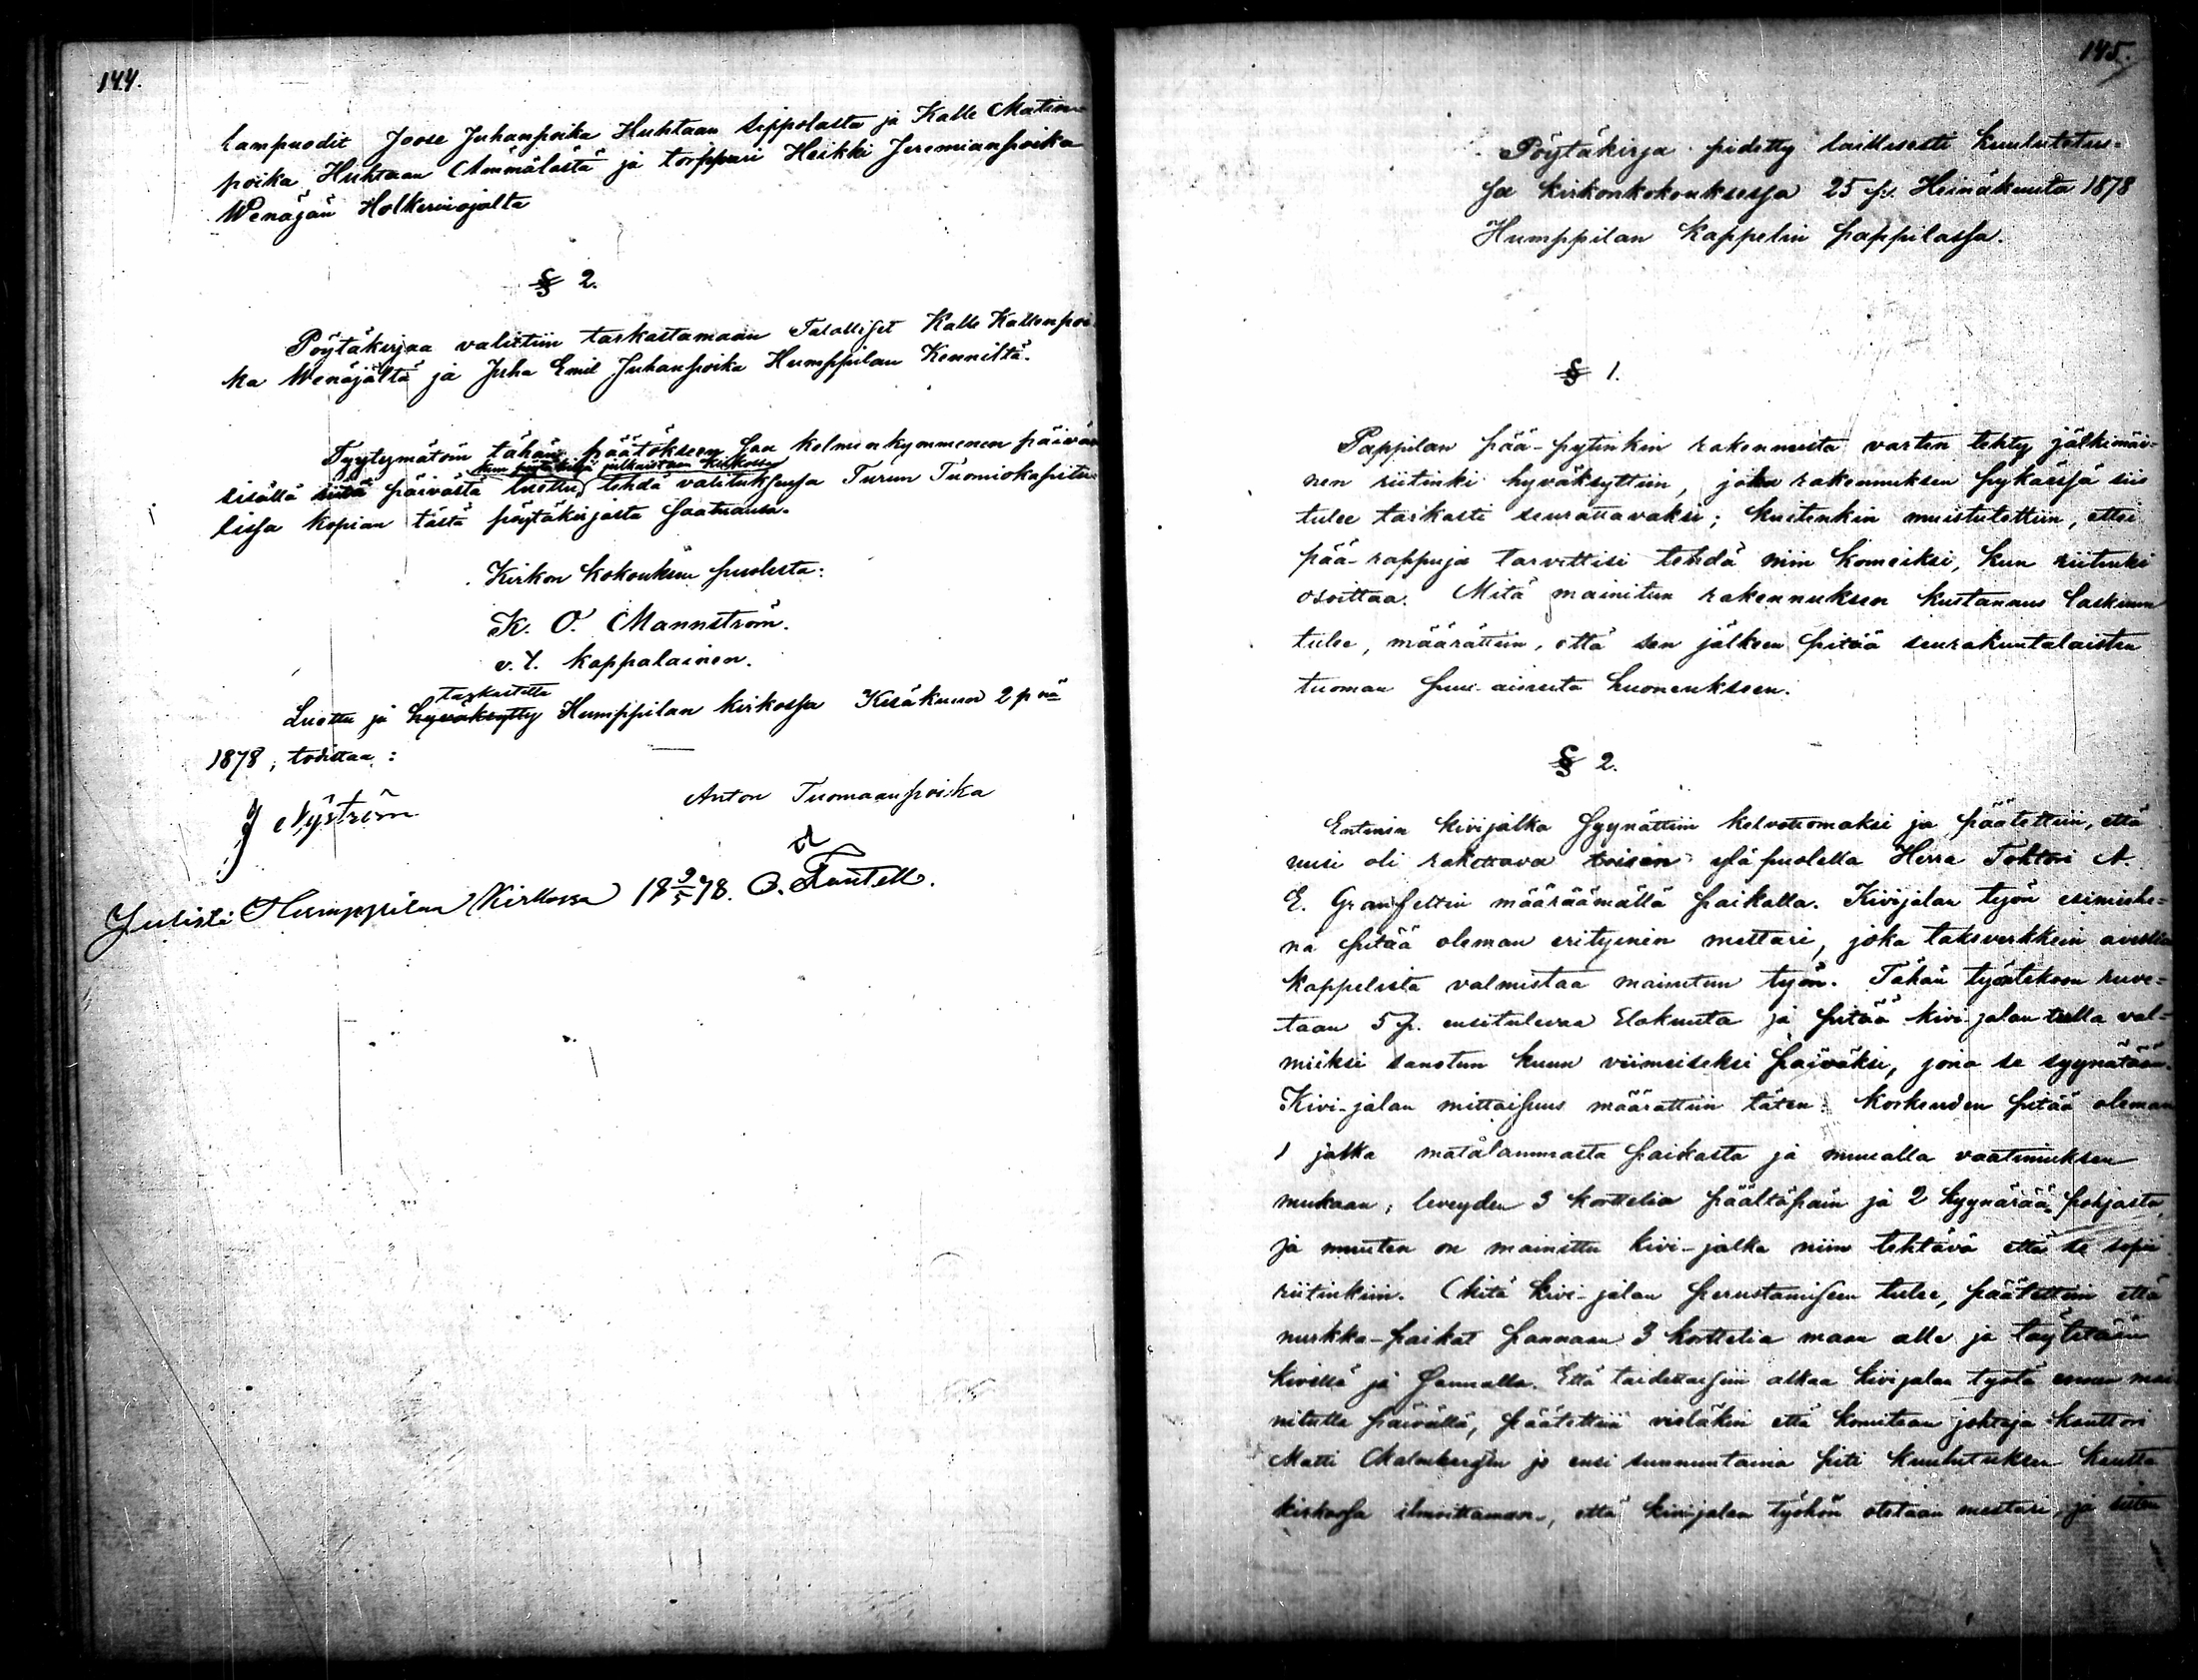 144.
Lampuodit Joose Juhanpoika Huhtaan Sippolasta ja Kalle Matin-
poika Huhtaan Ämmälästä ja torppari Heikki Jeremianpoika
Wenäjän Holkerinojalta
§ 2.
Pöytäkirjaa valittiin tarkastamaan Talolliset Kalle Kallenpoi-
ka Wenäjältä ja Juha Emil Juhanpoika Humppilan Kenniltä.
Tyytymätöin tähän päätökseen saa kolmenkymmenen päivän
kun pöytäkirja julkaistaan kirkossa
sisällä siitä päivästä luettu, tehdä valituksensa Turun Tuomiokapitu-
lissa kopian tästä pöytäkirjasta saatuansa.
Kirkon kokouksen puolesta:
K. O. Mannström.
v. t. kappalainen.
tarkastettu
Luettu ja hyväksytty Humppilan kirkossa Kesäkuun 2 p nä
1878, todistaa:
J Nyström
Anton Tuomaanpoika
Julisti Humppilan Kirkossa 18 2/5 78.
145.
Pöytäkirja pidetty laillisesti kuulutetus-
sa kirkonkokouksessa 25 p. Heinäkuuta 1878
Humppilan kappelin pappilassa.
§ 1.
Pappilan pää-pytinkin rakennusta varten tehty jälkimäi-
nen riitinki hyväksyttiin, joka rakennuksen pykäessä siis
tulee tarkasti seurattavaksi; kuitenkin muistutettiin, ettei
pää-rappuja tarvittisi tehdä niin komeiksi, kun riitinki
osoittaa. Mitä mainitun rakennuksen kustannus laskuun
tulee, määrättiin, että sen jälkeen pitää seurakuntalaisten
tuoman puu-aineita huoneukseen.
§ 2.
Entinen kivijalka syynättiin kelvottomaksi ja päätettiin, että
uusi oli rakettava toisen yläpuolella Herra Tohtori A.
E. Granfeltin määräämällä paikalla. Kivijalan työn esimiehe-
nä pitää oleman erityinen mestari, joka taksverkkein avulla
kappelista valmistaa mainitun työn. Tähän työntekoon ruve-
taan 5 p. ensitulevaa Elokuuta ja pitää kivi-jalan tulla val-
miiksi sanotun kuun viimeiseksi päiväksi, jona se syynätään.
Kivi-jalan mittaisuus määrättiin täten: korkeuden pitää oleman
1 jalka matalammasta paikasta ja muualla vaatimuksen
mukaan, leveyden 3 korttelia päältäpäin ja 2 kyynärää pohjasta,
ja muuten on mainittu kivi-jalka niin tehtävä että se sopii
riitinkiin. Mitä kivi-jalan perustamiseen tulee, päätettiin että
nurkka-paikat pannaan 3 korttelia maan alle ja täytetään
kivellä ja sannalla. Että taidettaisiin alkaa kivijalan työtä ennen mai-
nitulla päivällä, päätettiin vieläkin että komitean johtaja kanttori
Matti Malmbergin jo ensi sunnuntaina piti kuulutuksen kautta
kirkossa ilmoittaman, että kivijalan työhön otetaan mestari, ja sitten